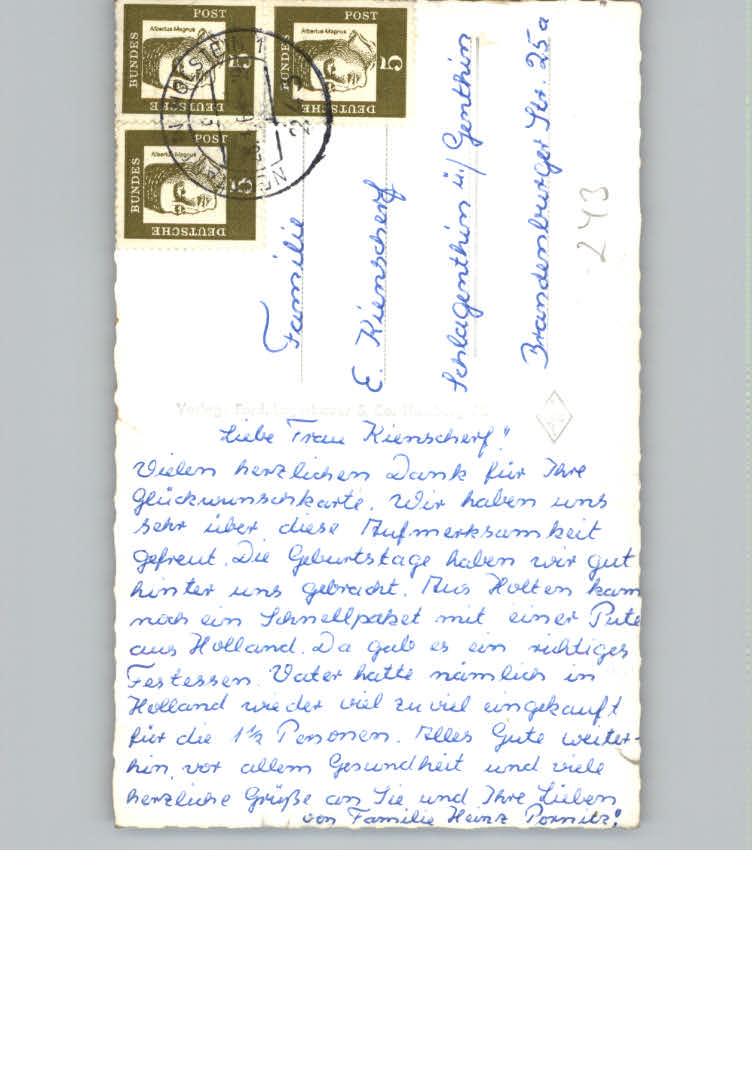 DEUTSCHE
BUNDES
POST
Albertus Magnus
5
DEUTSCHE
BUNDES
POST
Albertus Magnus
5
DEUTSCHE
BUNDES
POST
Albertus Magnus
5
Familie
E. Kienscherf
Schlagenthin ü/ Genthin
Brandenburger Str. 25a
243
Verlag: Ferd. & Co. Hamburg
Liebe Frau Kienscherf!
Vielen herzlichen Dank für Ihre
Glückwunschkarte. Wir haben uns
sehr über diese Aufmerksamkeit
gefreut. Die Geburtstage haben wir gut
hinter uns gebracht. Aus Holten kam
noch ein Schnellpaket mit einer Pute
aus Holland. Da gab es ein richtiges
Festessen. Vater hatte nämlich in
Holland wieder viel zu viel eingekauft
für die 1½ Personen. Alles Gute weiter-
hin, vor allem Gesundheit und viele
herzliche Grüße an Sie und Ihre Lieben
von Familie Heinz Pornitz!